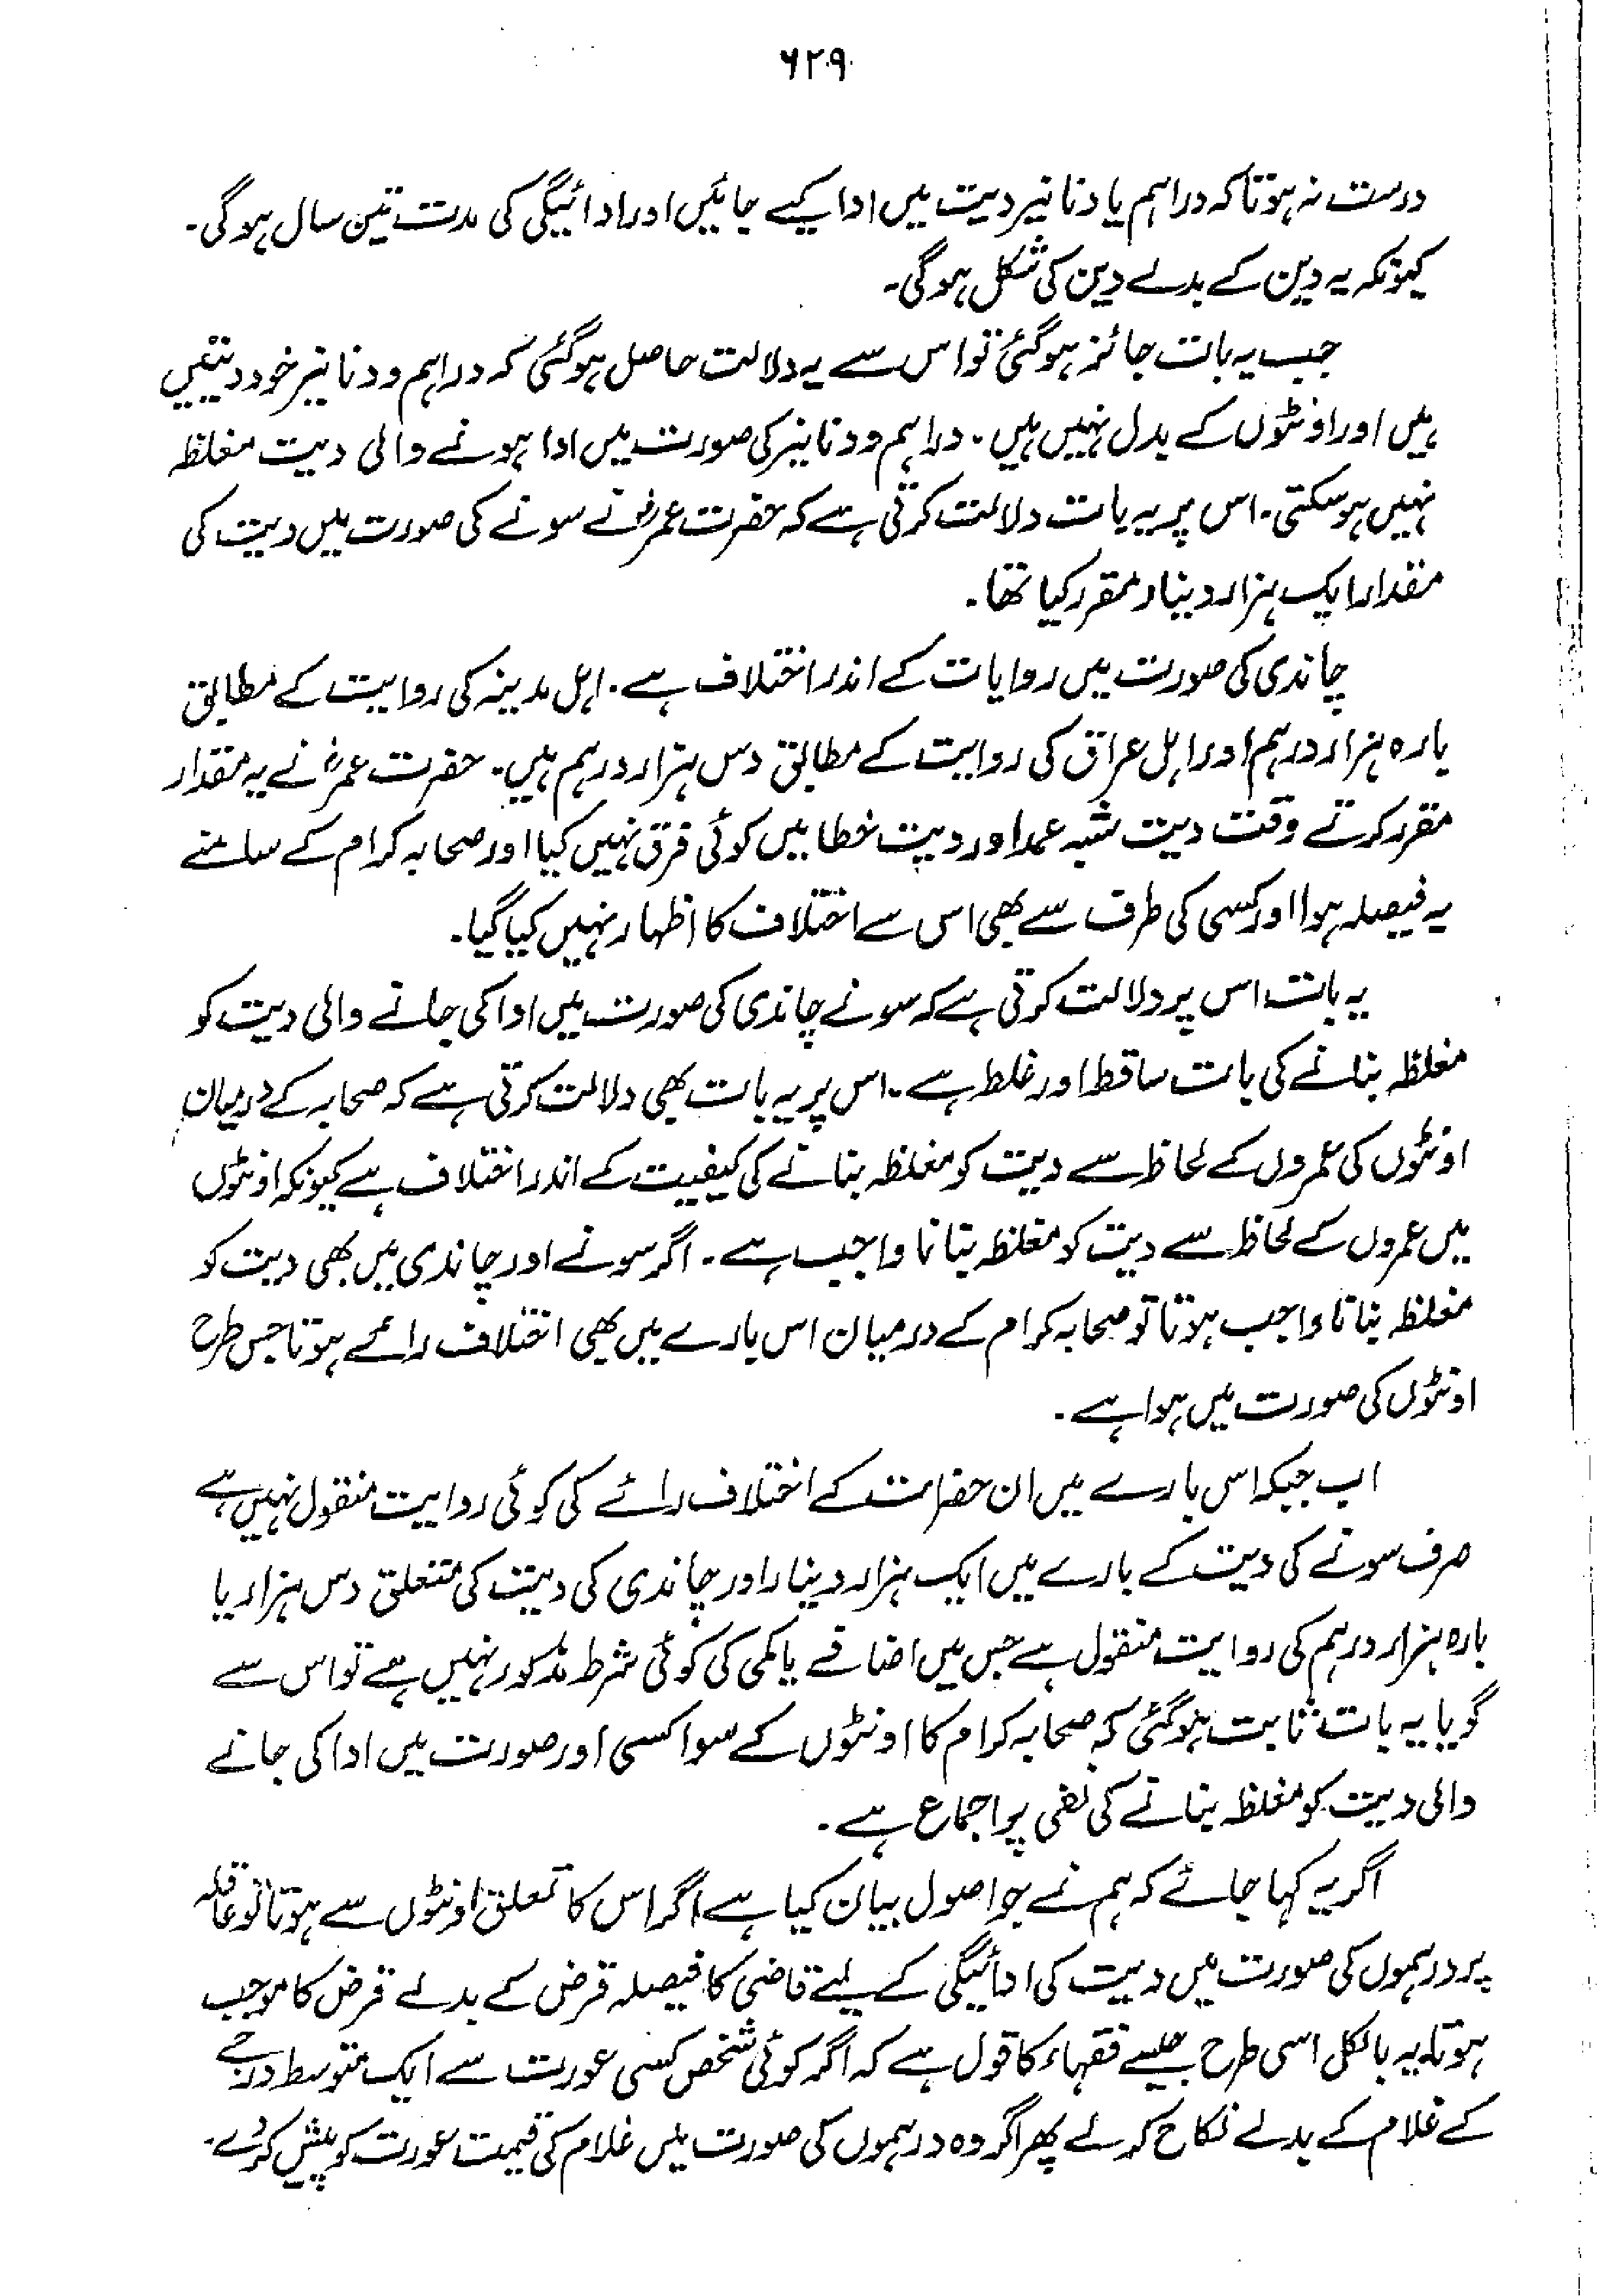 ۶۲۹
درست نہ ہوتا کہ دراہم یا دنانیر دیت میں ادا کیے جائیں اور ادائیگی کی مدت تین سال ہوگی۔
کیونکہ یہ دین کے بدلے دین کی شکل ہوگی۔
جب یہ بات جائز ہوگئی تو اس سے یہ دلالت حاصل ہوگئی کہ دراہم و دنانیر خود دیتیں
ہیں اور اونٹوں کے بدل نہیں ہیں۔ دراہم و دنانیر کی صورت میں ادا ہونے والی دیت مغلظہ
نہیں ہوسکتی۔ اس پر یہ بات دلالت کرتی ہے کہ حضرت عمرؓ نے سونے کی صورت میں دیت کی
مقدار ایک ہزار دینار مقرر کیا تھا۔
چاندی کی صورت میں روایات کے اندر اختلاف ہے۔ اہل مدینہ کی روایت کے مطابق
بارہ ہزار درہم اور اہل عراق کی روایت کے مطابق دس ہزار درہم ہیں۔ حضرت عمرؓ نے یہ مقدار
مقرر کرتے وقت دیت شبہ عمد اور دیت خطا میں کوئی فرق نہیں کیا اور صحابہ کرام کے سامنے
یہ فیصلہ ہوا اور کسی کی طرف سے بھی اس سے اختلاف کا اظہار نہیں کیا گیا۔
یہ بات اس پر دلالت کرتی ہے کہ سونے چاندی کی صورت میں ادا کی جانے والی دیت کو
مغلظہ بنانے کی بات ساقط اور غلط ہے۔ اس پر یہ بات بھی دلالت کرتی ہے کہ صحابہ کے درمیان
اونٹوں کی عمروں کے لحاظ سے دیت کو مغلظہ بنانے کی کیفیت کے اندر اختلاف ہے کیونکہ اونٹوں
میں عمروں کے لحاظ سے دیت کو مغلظہ بنانا واجب ہے۔ اگر سونے اور چاندی میں بھی دیت کو
مغلظہ بنانا واجب ہوتا تو صحابہ کرام کے درمیان اس بارے میں بھی اختلاف رائے ہوتا جس طرح
اونٹوں کی صورت میں ہوا ہے۔
اب جبکہ اس بارے میں ان حضرات کے اختلاف رائے کی کوئی روایت منقول نہیں ہے
صرف سونے کی دیت کے بارے میں ایک ہزار دینار اور چاندی کی دیت کی متعلق دس ہزار یا
بارہ ہزار درہم کی روایت منقول ہے جس میں اضافے یا کمی کی کوئی شرط مذکور نہیں ہے تو اس سے
گویا یہ بات ثابت ہوگئی کہ صحابہ کرام کا اونٹوں کے سوا کسی اور صورت میں ادا کی جانے
والی دیت کو مغلظہ بنانے کی نفی پر اجماع ہے۔
اگر یہ کہا جائے کہ ہم نے جو اصول بیان کیا ہے اگر اس کا تعلق اونٹوں سے ہوتا تو عاقلہ
پر درہموں کی صورت میں دیت کی ادائیگی کے لیے قاضی کا فیصلہ قرض کے بدلے قرض کا موجب
ہوتا یہ بالکل اسی طرح جیسے فقہاء کا قول ہے کہ اگر کوئی شخص کسی عورت سے ایک متوسط درجے
کے غلام کے بدلے نکاح کرلے پھر اگر وہ درہموں کی صورت میں غلام کی قیمت عورت کو پیش کردے۔